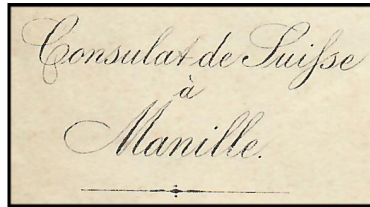 Consulat de Suisse
à
Manille.